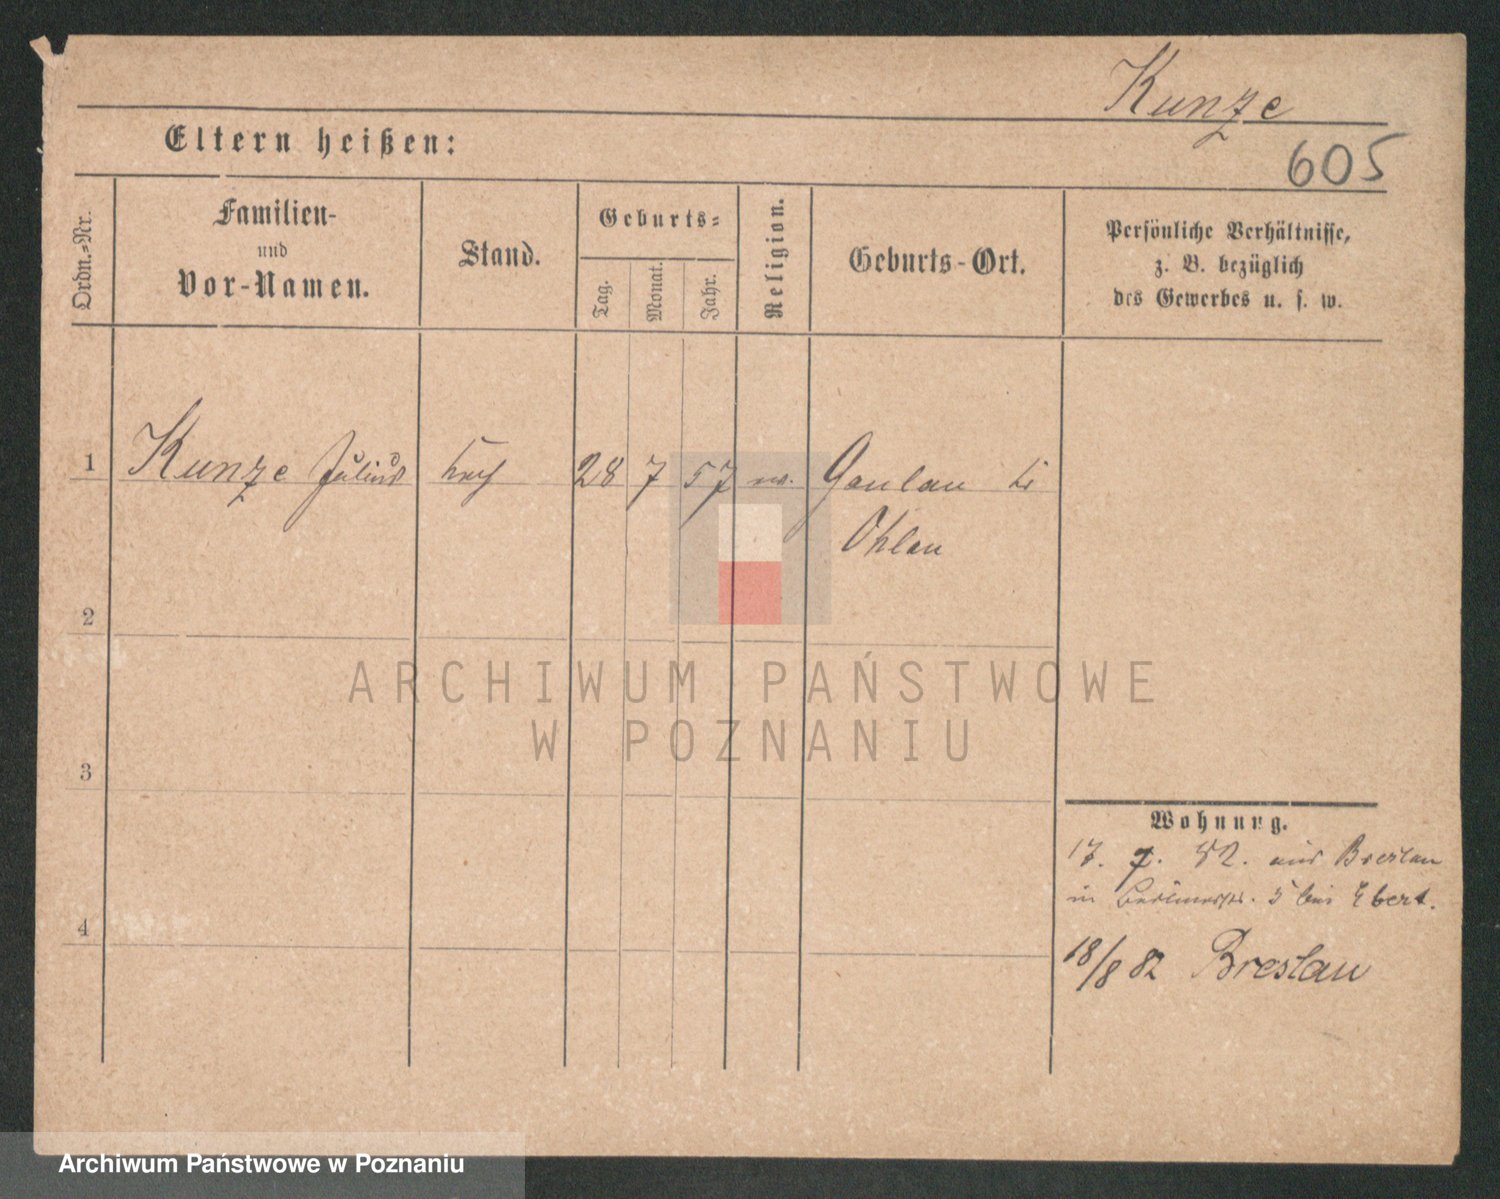 Kunze
Eltern heißen:
605
Ordn.-Nr.
Familien-
und
Vor-Namen.
Stand.
Geburts-
Tag.
Monat.
Jahr.
Religion.
Geburts-Ort.
Persönliche Verhältnisse,
z. B. bezüglich
des Gewerbes u. s. w.
1 Kunze Julius 28 7 57 Gaulau bei
Ohlau
2
3
4
Wohnung.
17. 7. 82. aus Breslau
in 5 bei Ebert.
18/8 82 Breslau
ARCHIWUM PAŃSTWOWE
W POZNANIU
Archiwum Państwowe w Poznaniu